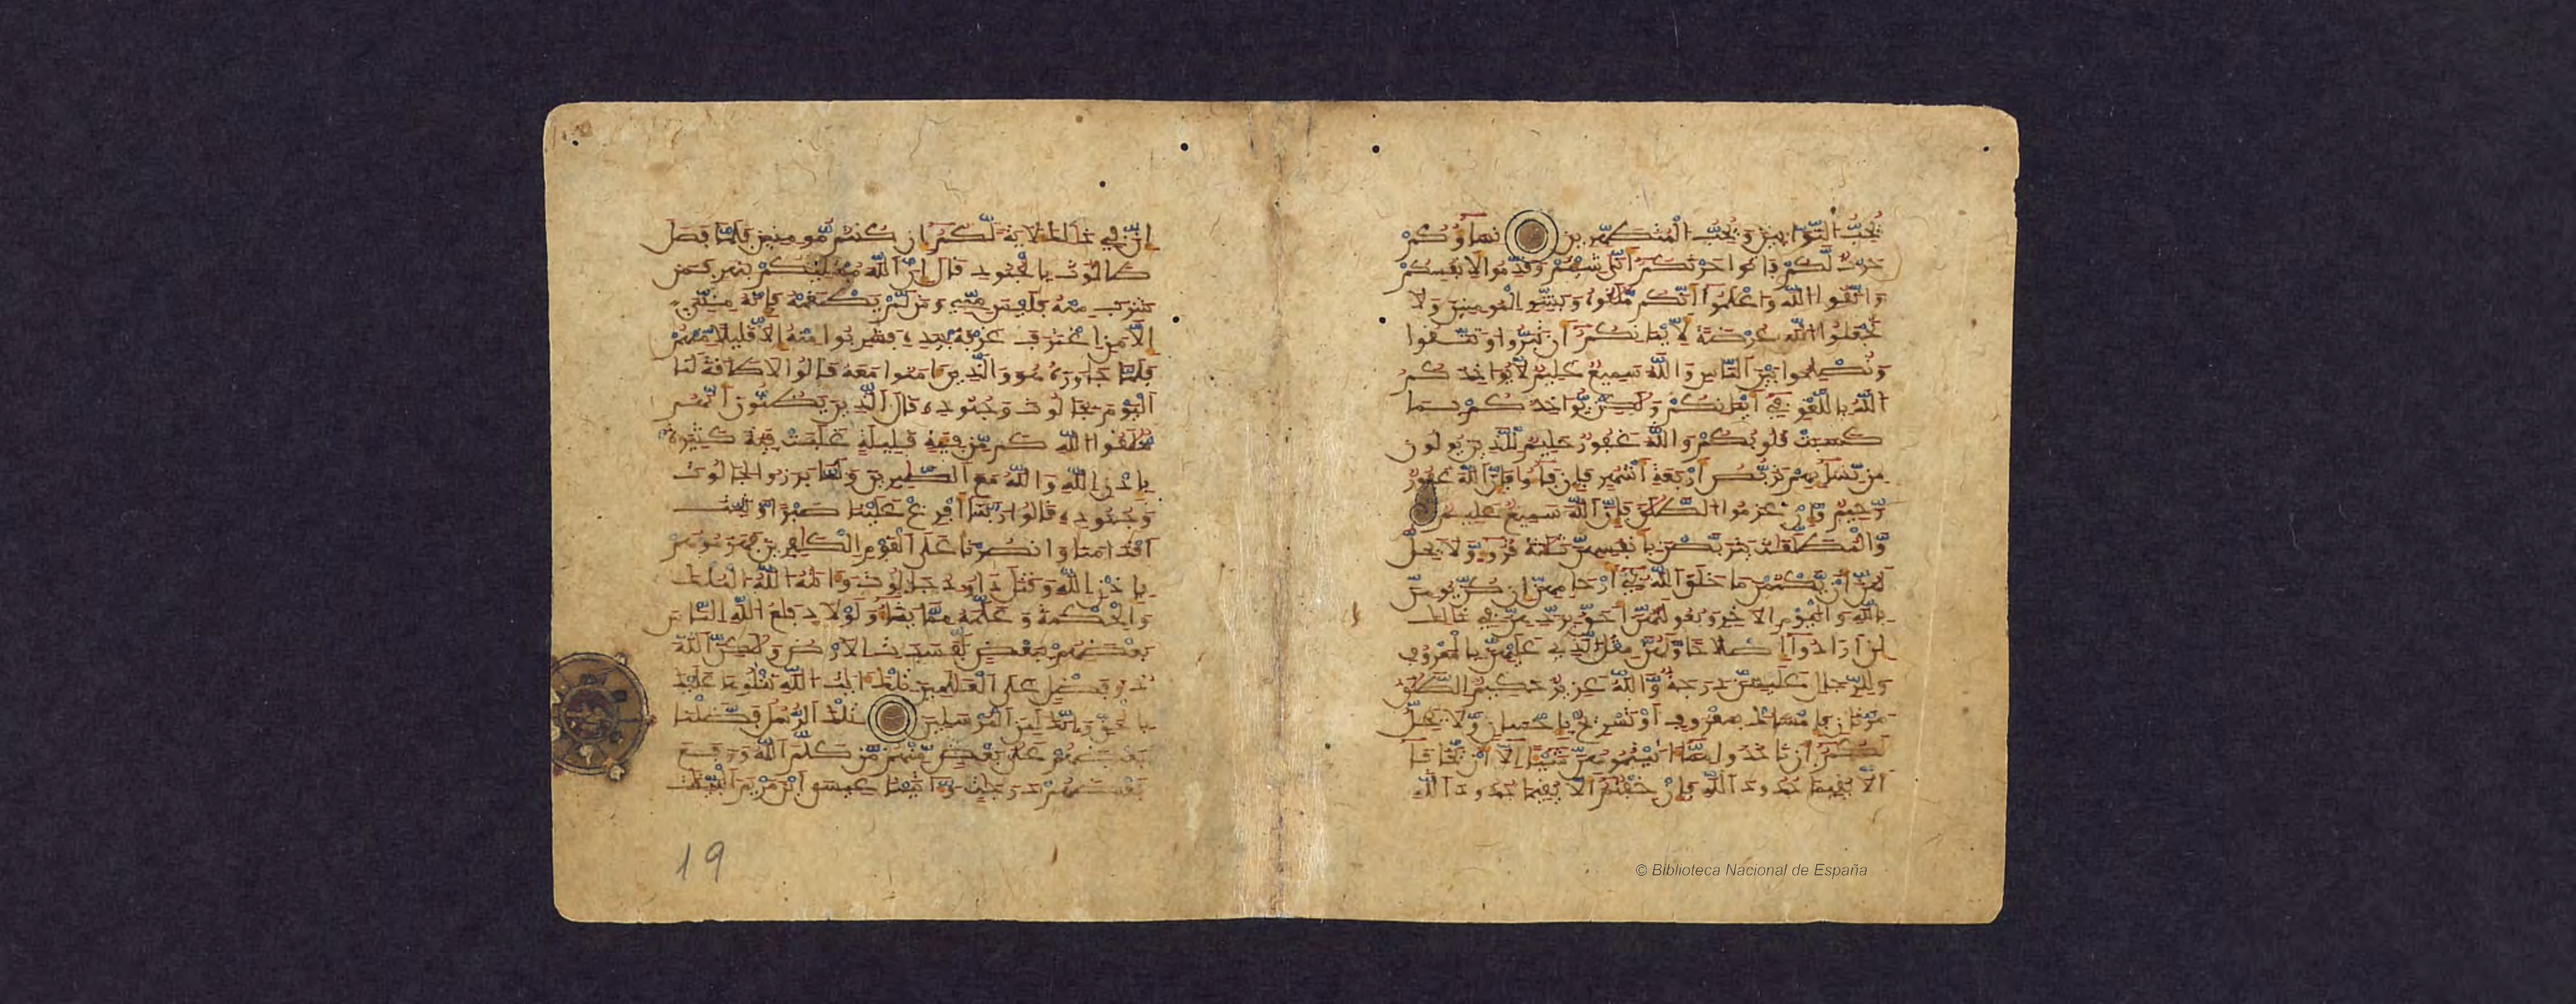 يُحِبُّ التَّوَّابِينَ وَيُحِبُّ الْمُتَطَهِّرِينَ نِسَاؤُكُمْ
حَرْثٌ لَّكُمْ فَاتُوا حَرْثَكُمُ أَنَّى شِئْتُمْ وَقَدِّمُوا لِأَنفُسِكُمْ
وَاتَّقُوا اللَّهَ وَاعْلَمُوا أَنَّكُم مُّلَقُوهُ وَبَشِّرِ الْمُومِنِينَ وَلَا
تَجْعَلُوا اللَّهَ عُرْضَةً لِّأَيْمَنِكُمُ أَن تَبَرُّوا وَتَتَّقُوا
وَتُصْلِحُوا بَيْنَ النَّاسِ وَاللَّهُ سَمِيعٌ عَلِيمٌ لَّا يُوَاخِذُكُمُ
اللَّهُ بِاللَّغْوِ فِي أَيْمَنِكُمْ وَلَكِن يُّوَاخِذُكُم بِمَا
كَسَبَتْ قُلُوبُكُمْ وَاللَّهُ غَفُورٌ حَلِيمٌ لِّلَّذِينَ يُولُونَ
مِن نِّسَائِهِمْ تَرَبُّصُ أَرْبَعَةِ أَشْهُرٍ فَإِن فَاءُو فَإِنَّ اللَّهَ غَفُورٌ
رَّحِيمٌ وَإِنْ عَزَمُوا الطَّلَقَ فَإِنَّ اللَّهَ سَمِيعٌ عَلِيمٌ
وَالْمُطَلَّقَتُ يَتَرَبَّصْنَ بِأَنفُسِهِنَّ ثَلَثَةَ قُرُوءٍ وَلَا يَحِلُّ
لَهُنَّ أَن يَّكْتُمْنَ مَا خَلَقَ اللَّهُ فِي أَرْحَامِهِنَّ إِن كُنَّ يُومِنَّ
بِاللَّهِ وَالْيَوْمِ الْأَخِرِ وَبُعُولَتُهُنَّ أَحَقُّ بِرَدِّهِنَّ فِي ذَلِكَ
إِنَ أَرَادُوا إِصْلَحًا وَلَهُنَّ مِثْلُ الَّذِي عَلَيْهِنَّ بِالْمَعْرُوفِ
وَلِلرِّجَالِ عَلَيْهِنَّ دَرَجَةٌ وَاللَّهُ عَزِيزٌ حَكِيمٌ الطَّلَقُ
مَرَّتَنِ فَإِمْسَاكٌ بِمَعْرُوفٍ أَوْ تَسْرِيحٌ بِإِحْسَنٍ وَلَا يَحِلُّ
لَكُمُ أَن تَاخُذُوا مِمَّا ءَاتَيْتُمُوهُنَّ شَيْئًا إِلَّا أَن يَّخَافَا
أَلَّا يُقِيمَا حُدُودَ اللَّهِ فَإِنْ خِفْتُمُ أَلَّا يُقِيمَا حُدُودَ اللَّهِ
إِنَّ فِي ذَلِكَ لَأَيَةً لَّكُمُ إِن كُنتُم مُّومِنِينَ فَلَمَّا فَصَلَ
طَالُوتُ بِالْجُنُودِ قَالَ إِنَّ اللَّهَ مُبْتَلِيكُم بِنَهَرٍ فَمَن
شَرِبَ مِنْهُ فَلَيْسَ مِنِّي وَمَن لَّمْ يَطْعَمْهُ فَإِنَّهُ مِنِّي
إِلَّا مَنِ اغْتَرَفَ غَرْفَةً بِيَدِهِ فَشَرِبُوا مِنْهُ إِلَّا قَلِيلًا مِّنْهُمْ
فَلَمَّا جَاوَزَهُ هُوَ وَالَّذِينَ ءَامَنُوا مَعَهُ قَالُوا لَا طَاقَةَ لَنَا
الْيَوْمَ بِجَالُوتَ وَجُنُودِهِ قَالَ الَّذِينَ يَظُنُّونَ أَنَّهُم
مُّلَقُوا اللَّهِ كَم مِّن فِئَةٍ قَلِيلَةٍ غَلَبَتْ فِئَةً كَثِيرَةً
بِإِذْنِ اللَّهِ وَاللَّهُ مَعَ الصَّبِرِينَ وَلَمَّا بَرَزُوا لِجَالُوتَ
وَجُنُودِهِ قَالُوا رَبَّنَا أَفْرِغْ عَلَيْنَا صَبْرًا وَثَبِّتَ
أَقْدَامَنَا وَانصُرْنَا عَلَى الْقَوْمِ الْكَفِرِينَ فَهَزَمُوهُم
بِإِذْنِ اللَّهِ وَقَتَلَ دَاوُودُ جَالُوتَ وَءَاتَهُ اللَّهُ الْمُلْكَ
وَالْحِكْمَةَ وَعَلَّمَهُ مِمَّا يَشَاءُ وَلَوْلَا دِفَعُ اللَّهِ النَّاسَ
بَعْضَهُم بِبَعْضٍ لَّفَسَدَتِ الْأَرْضُ وَلَكِنَّ اللَّهَ
ذُو فَضْلٍ عَلَى الْعَلَمِينَ تِلْكَ ءَايَتُ اللَّهِ نَتْلُوهَا عَلَيْكَ
بِالْحَقِّ وَإِنَّكَ لَمِنَ الْمُرْسَلِينَ تِلْكَ الرُّسُلُ فَضَّلْنَا
بَعْضَهُمْ عَلَى بَعْضٍ مِّنْهُم مَّن كَلَّمَ اللَّهُ وَرَفَعَ
بَعْضَهُمْ دَرَجَتٍ وَءَاتَيْنَا عِيسَى ابْنَ مَرْيَمَ الْبَيِّنَتِ
19
© Biblioteca Nacional de España